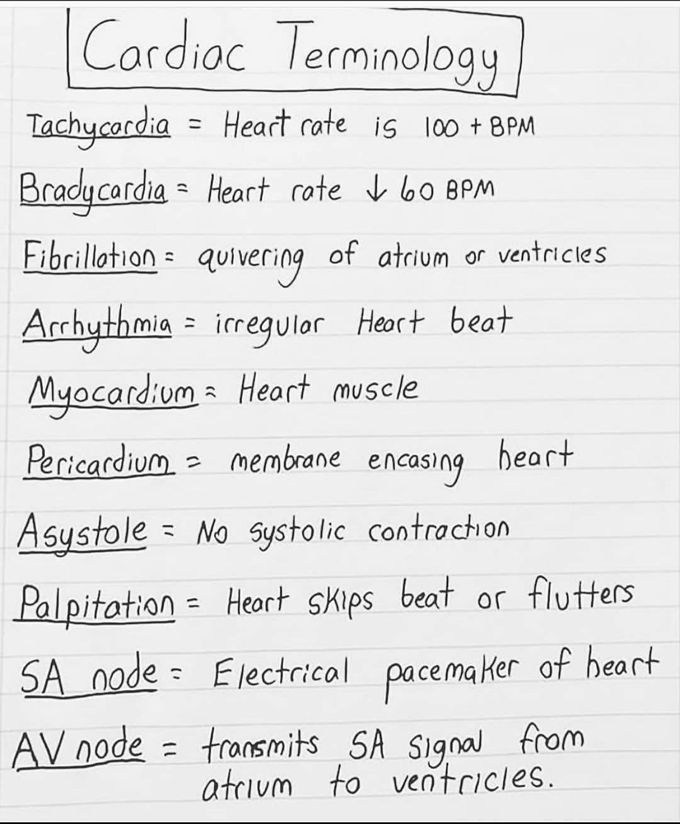 Cardiac Terminology
Tachycardia = Heart rate is 100 + BPM
Bradycardia = Heart rate ↓ 60 BPM
Fibrillation = quivering of atrium or ventricles
Arrhythmia = irregular Heart beat
Myocardium = Heart muscle
Pericardium = membrane encasing heart
Asystole = No systolic contraction
Palpitation = Heart skips beat or flutters
SA node = Electrical pacemaker of heart
AV node = transmits SA signal from
atrium to ventricles.